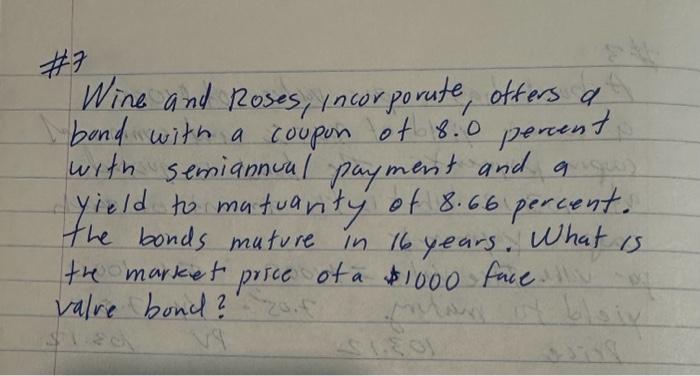 #7
Wine and Roses, incorporate, offers a
bond with a coupon of 8.0 percent
with semiannual payment and a
yield to matuarity of 8.66 percent.
the bonds mature in 16 years. What is
the market price of a $1000 face
value bond?